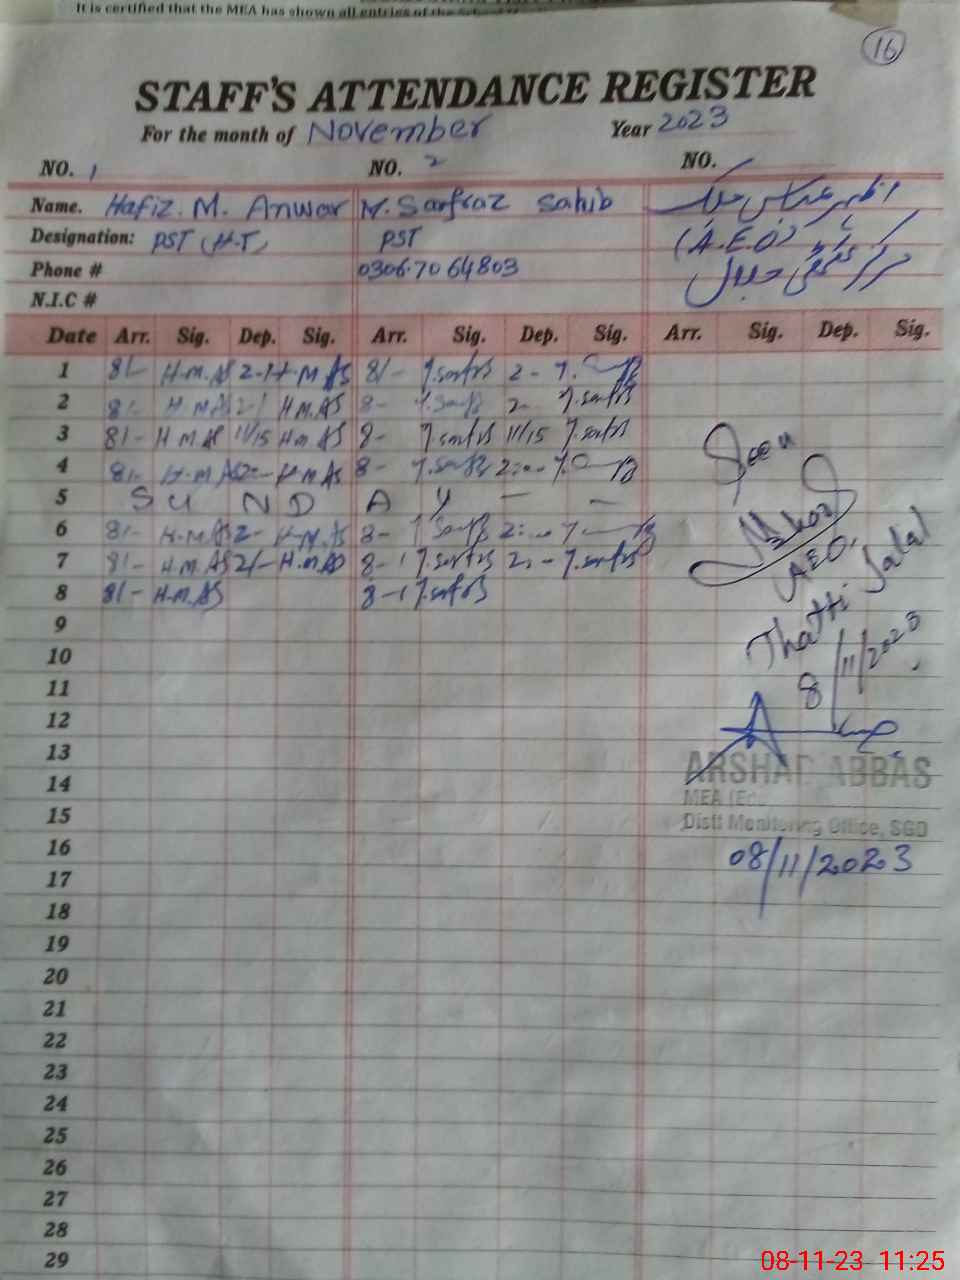 It is certified that the MEA has shown all entries of the School
16
STAFF'S ATTENDANCE REGISTER
For the month of November Year 2023
NO. 1 NO. 2 NO.
Name. Hafiz. M. Anwar M. Sarfraz Sahib اظہر عباس ملک
Designation: PST (H.T) PST (A.E.O)
Phone # 0306.7064803 مرکز ٹھٹھی جلال
N.I.C #
Date Arr. Sig. Dep. Sig. Arr. Sig. Dep. Sig. Arr. Sig. Dep. Sig.
1 8/- H.M.AS 2-1 H.M.AS 8/- 2-
2 8/- H.M.AS 2-1 H.M.AS 8- 2-
3 8/- H.M.AS 11/15 H.M.AS 8- 11/15
4 8/- H.M.AS 2:- H.M.AS 8- 2:-
5 S U N D A Y - -
6 8/- H.M.AS 2- H.M.AS 8- 2:-
7 8/- H.M.AS 2/- H.M.AS 8-1 2:-
8 8/- H.M.AS 8-1
9
10
11
12
13
14
15
16
17
18
19
20
21
22
23
24
25
26
27
28
29
Seen
AEO,
Thatti Jalal
8/11/2023
ARSHAD ABBAS
MEA (Ed
Distt Monitoring Office, SGD
08/11/2023
08-11-23 11:25